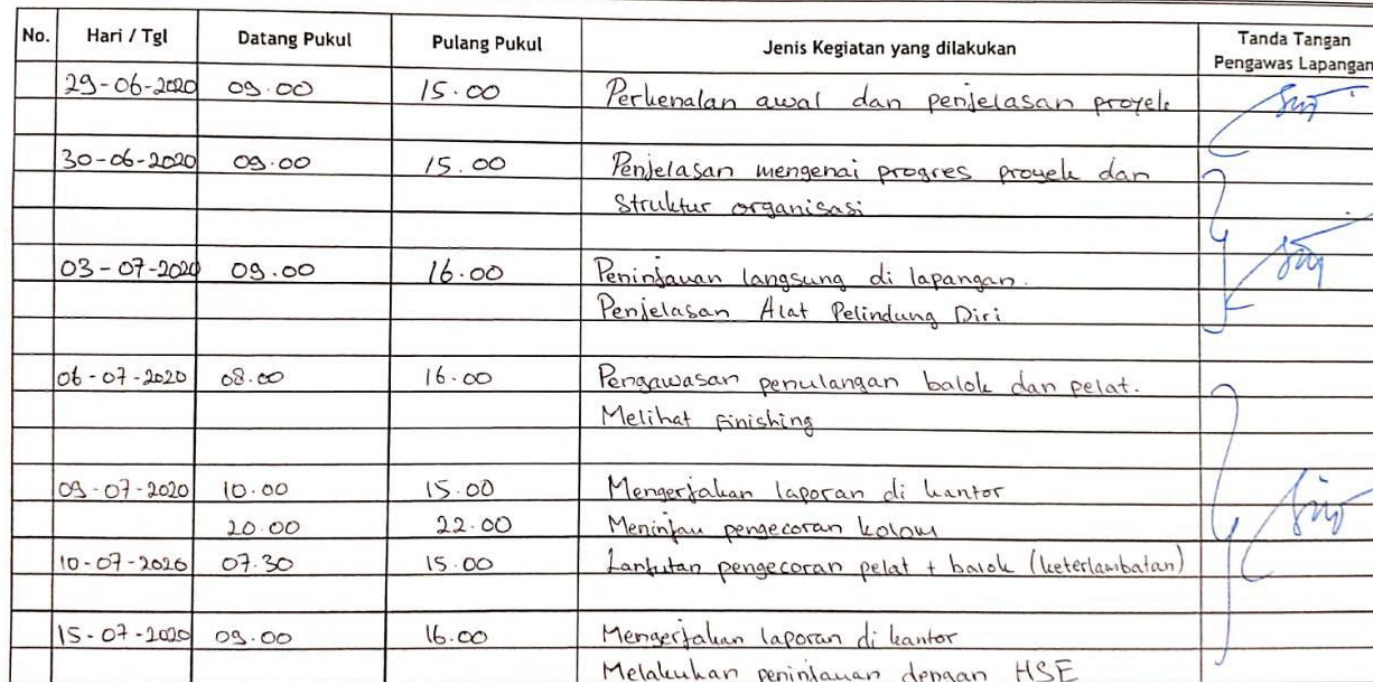 No. Hari / Tgl Datang Pukul Pulang Pukul Jenis Kegiatan yang dilakukan Tanda Tangan Pengawas Lapangan
29-06-2020 09.00 15.00 Perkenalan awal dan penjelasan proyek
30-06-2020 09.00 15.00 Penjelasan mengenai progres proyek dan
Struktur organisasi
03-07-2020 09.00 16.00 Peninjauan langsung di lapangan.
Penjelasan Alat Pelindung Diri
06-07-2020 08.00 16.00 Pengawasan penulangan balok dan pelat.
Melihat Finishing
09-07-2020 10.00 15.00 Mengerjakan laporan di kantor
20.00 22.00 Meninjau pengecoran kolom
10-07-2020 07.30 15.00 Lanjutan pengecoran pelat + balok (keterlambatan)
15-07-2020 09.00 16.00 Mengerjakan laporan di kantor
Melakukan peninjauan dengan HSE